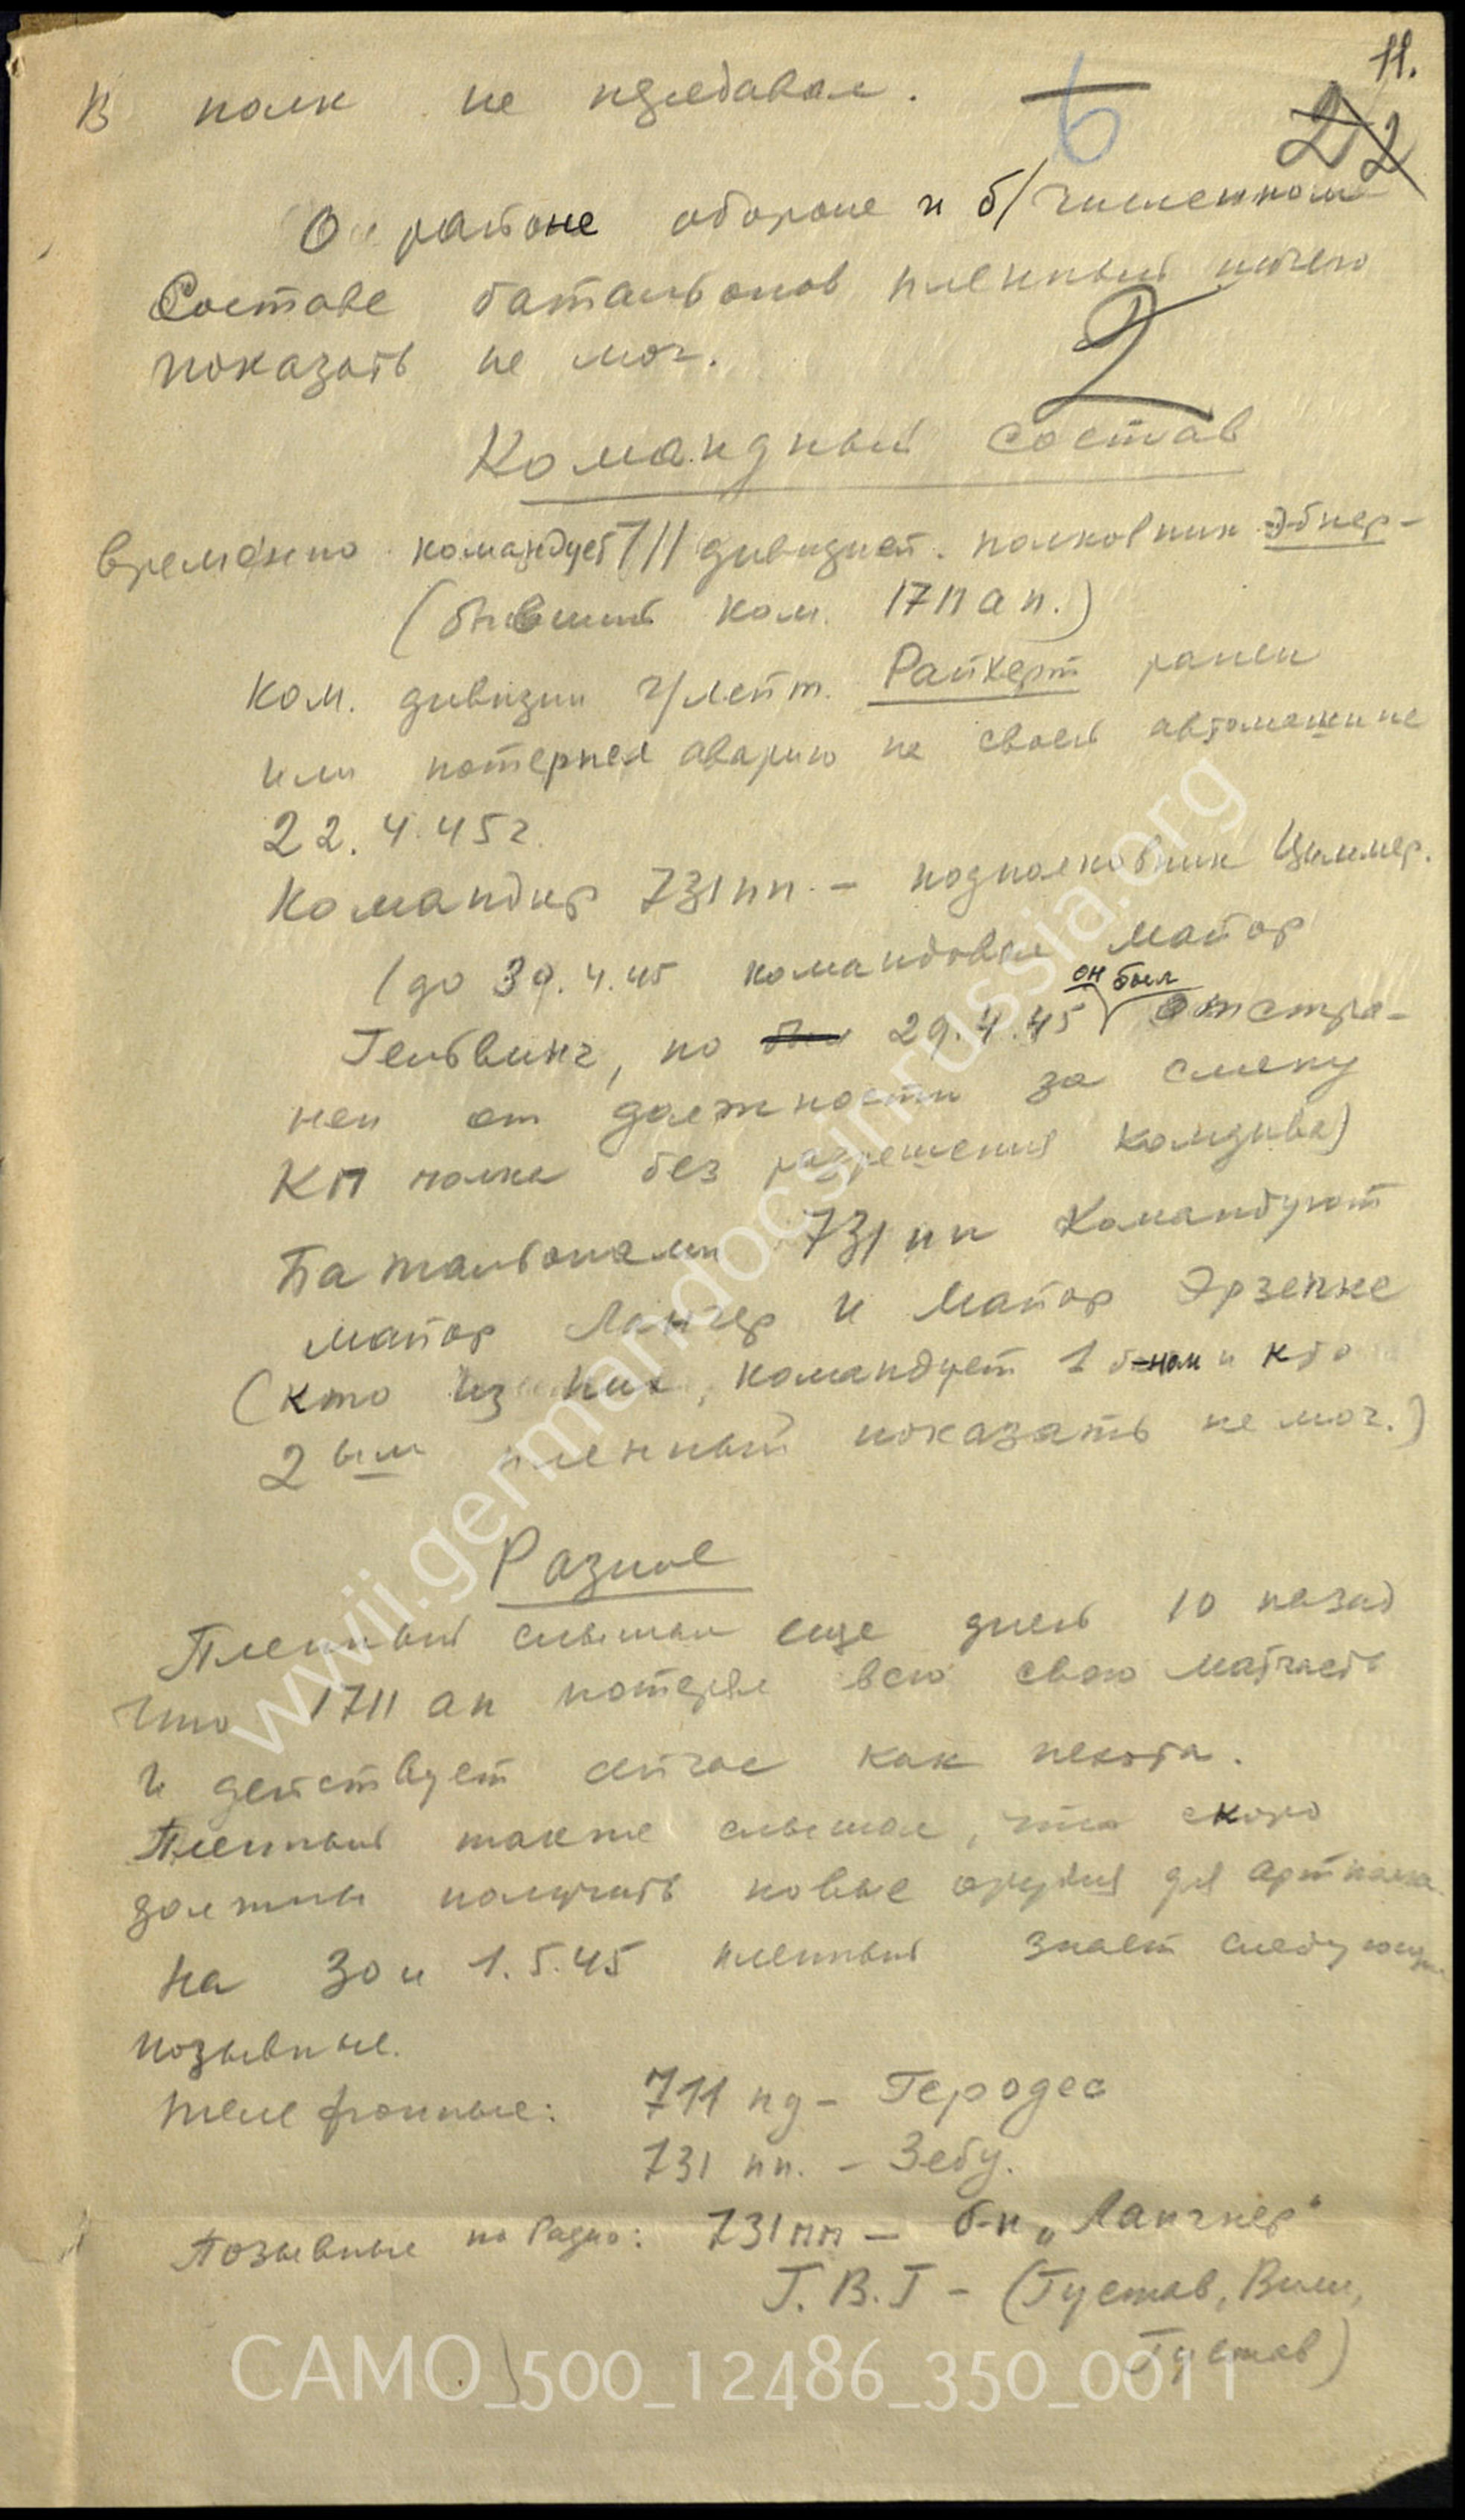 11.
В полк не прибывал.
6
22
О районе обороне и б/численном
Составе батальонов пленный ничего
показать не мог.
2
Командный состав
временно командует 711 дивизией. полковник Эбнер-
(бывший ком. 1711 ап.)
Ком. дивизии г/лейт. Райхерт ранен
или потерпел аварию на своей автомашине
22.4.45г.
Командир 731 пп. – подполковник Циммер.
(до 30.4.45 командовал майор
Гельвинг, но 29.4.45 он был отстра-
нен от должности за смену
КП полка без разрешения комдива)
Батальонами 731 пп Командуют
майор Лангер и Майор Эрзепке
(кто из них, командует 1 б-ном и кто
2ым пленный показать не мог.)
Разное
Пленный слышал еще дней 10 назад
что 1711 ап потерял всю свою матчасть
и действует сейчас как пехота.
Пленный также слышал, что скоро
должны получить новые орудия для артполка
На 30 и 1.5.45 пленный знает следующие
позывные.
телефонные: 711 пд – Геродес
731 пп. – Зебу.
Позывные по Радио: 731 пп – б-н „Лангнер“
Г.В.Г – (Густав, Вили,
Густав)
www.germandocsinrussia.org
CAMO_500_12486_350_0011